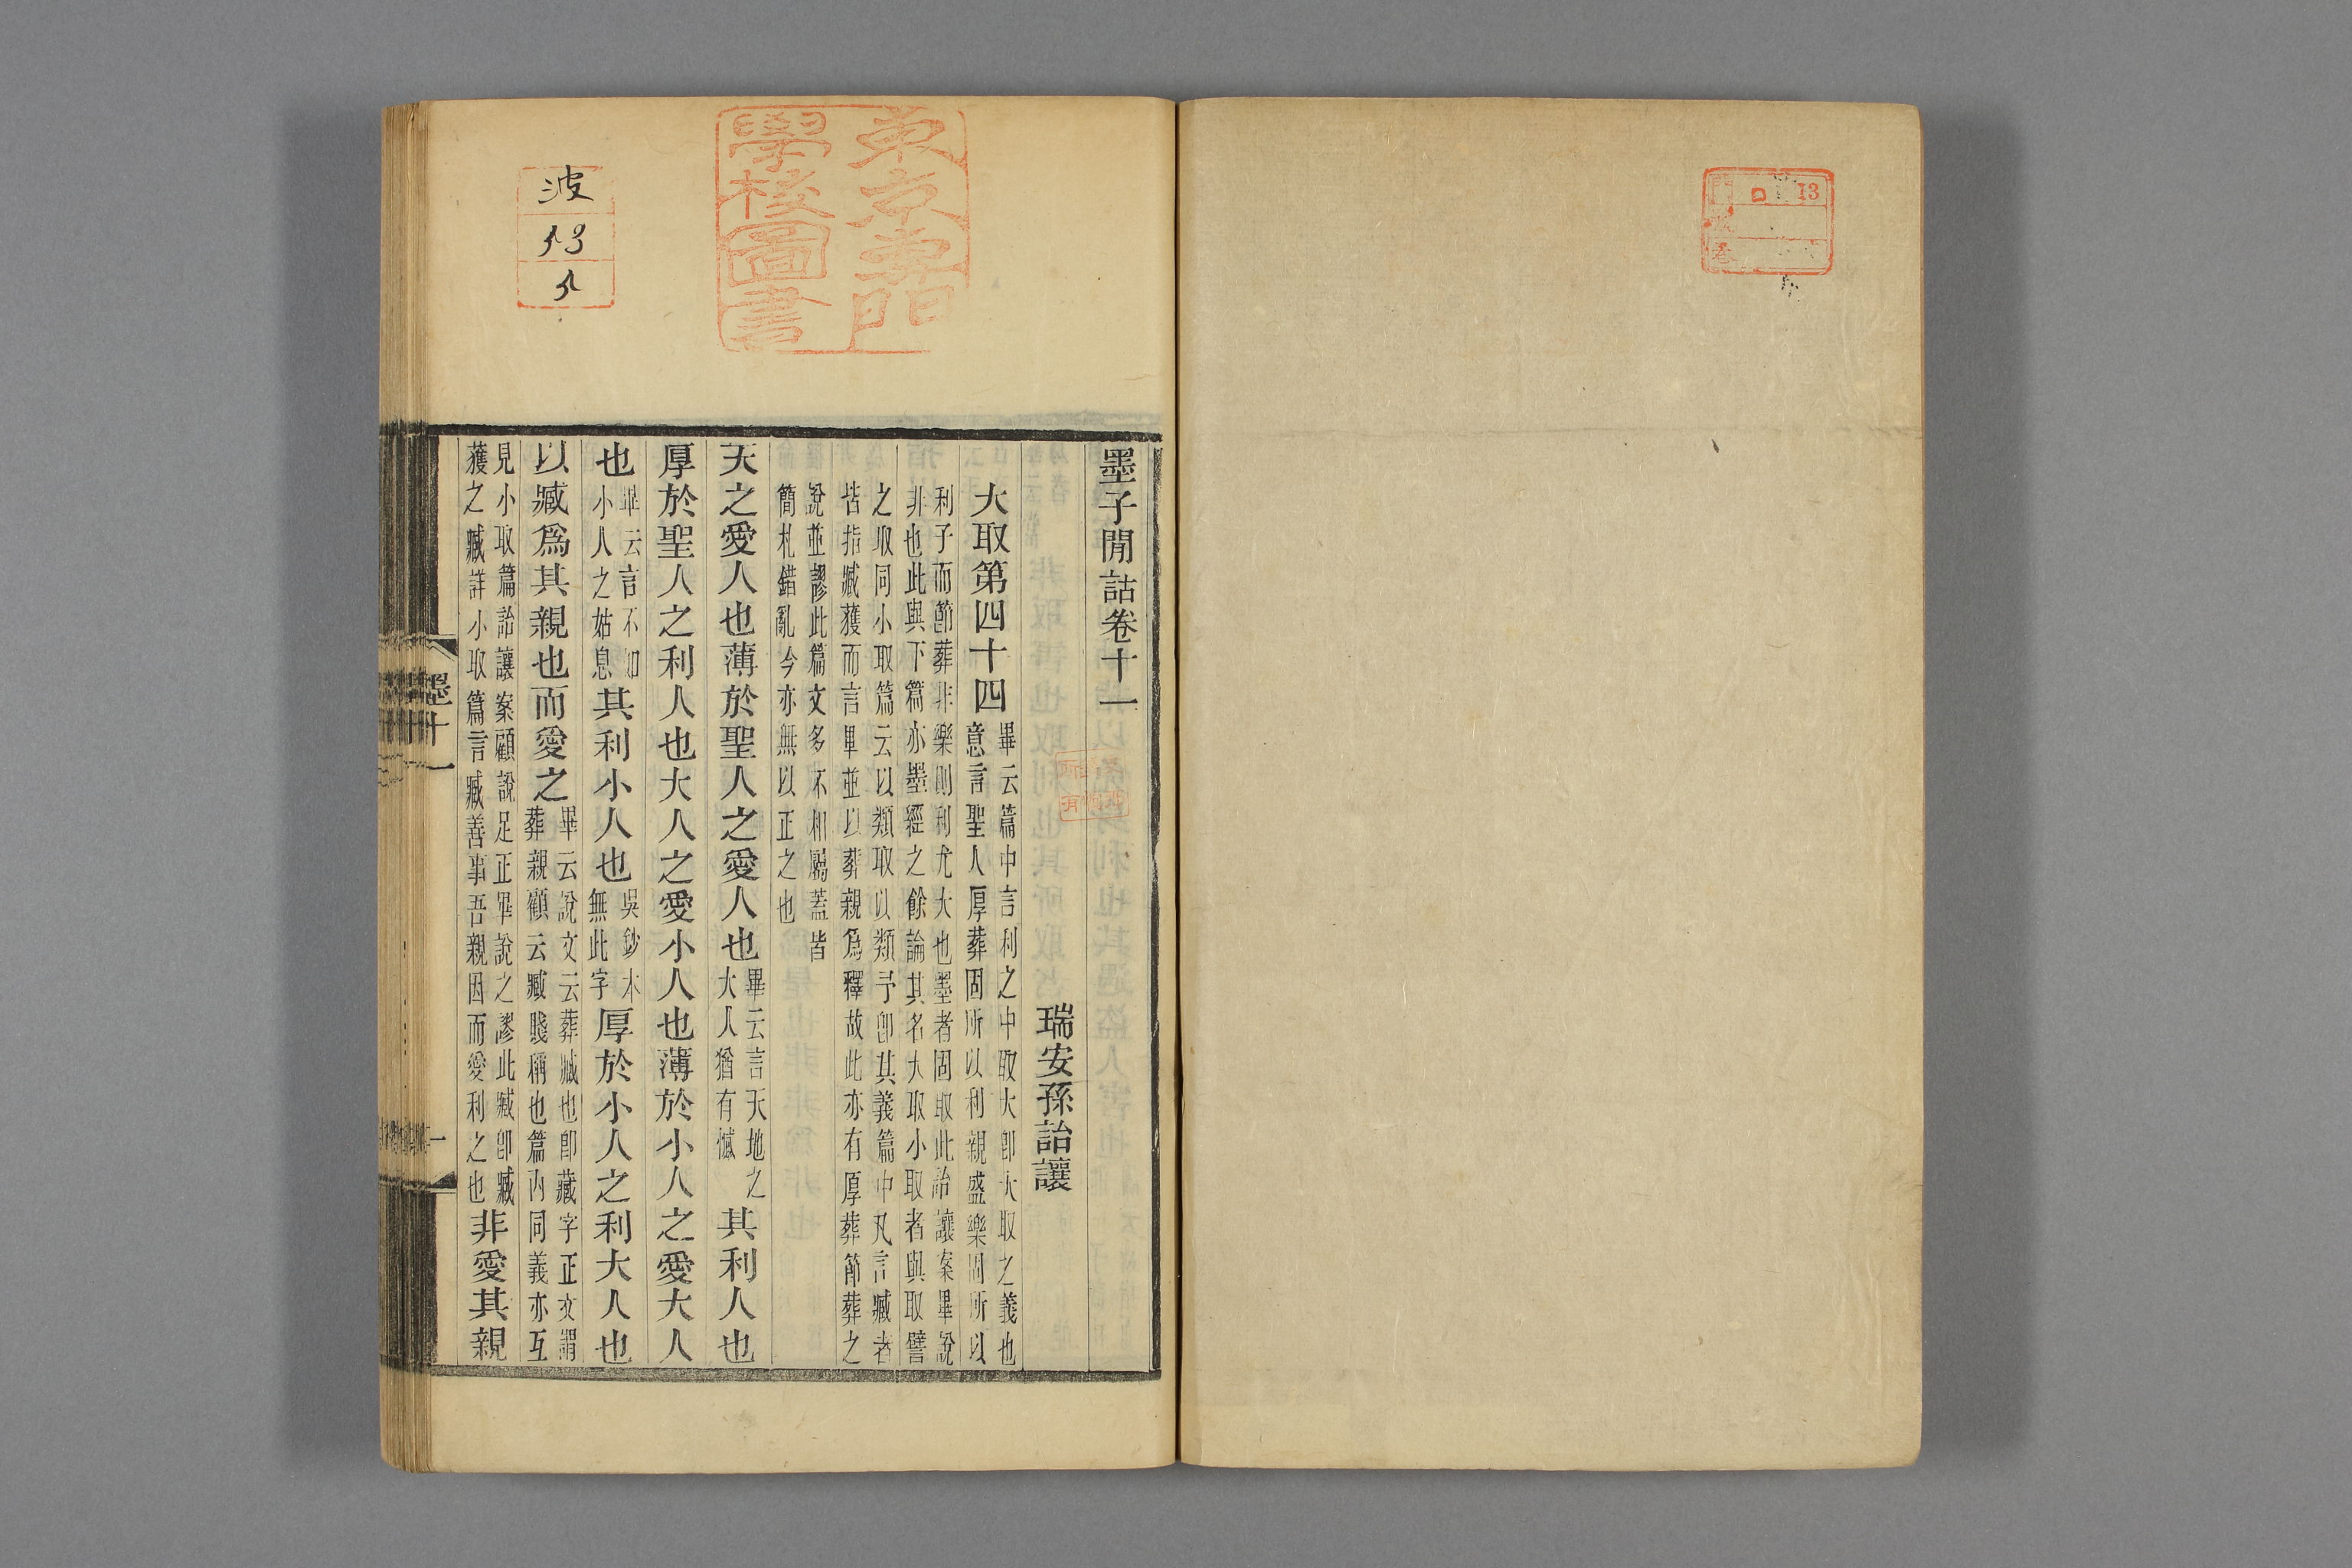 東京專門
學校圖書
波
13
墨子閒詁卷十一
瑞安孫詒讓
大取第四十四
畢云篇中言利之中取大卽大取之義也
意言聖人厚葬固所以利親盛樂固所以
利子而節葬非樂則利尤大也墨者固取此詒讓案畢說
非也此與下篇亦墨經之餘論其名大取小取者與取譬
之取同小取篇云以類取以類予卽其義篇中凡言臧者
皆指臧獲而言畢並以葬親爲釋故此亦有厚葬節葬之
說並謬此篇文多不相屬蓋皆
簡札錯亂今亦無以正之也
天之愛人也薄於聖人之愛人也
畢云言天地之
大人猶有憾
其利人也
厚於聖人之利人也大人之愛小人也薄於小人之愛大人
也
畢云言不如
小人之姑息
其利小人也
吳鈔本
無此字
厚於小人之利大人也
以臧爲其親也而愛之
畢云說文云葬臧也卽藏字正文謂
葬親顧云臧賤稱也篇內同義亦互
見小取篇詒讓案顧說足正畢說之謬此臧卽臧
獲之臧詳小取篇言臧善事吾親因而愛利之也
非愛其親
墨十一
一
13